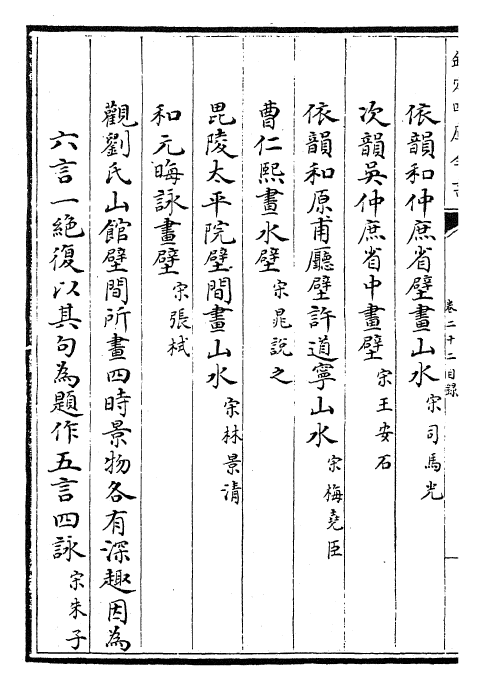 欽定四庫全書
卷二十二目録
依韻和仲庶省壁畫山水 宋司馬光
次韻吳仲庶省中畫壁 宋王安石
依韻和原甫廳壁許道寧山水 宋梅堯臣
曹仁熙畫水壁 宋晁說之
毘陵太平院壁間畫山水 宋林景清
和元晦詠畫壁 宋張栻
觀劉氏山館壁間所畫四時景物各有深趣因為
六言一絶復以其句為題作五言四詠 宋朱子